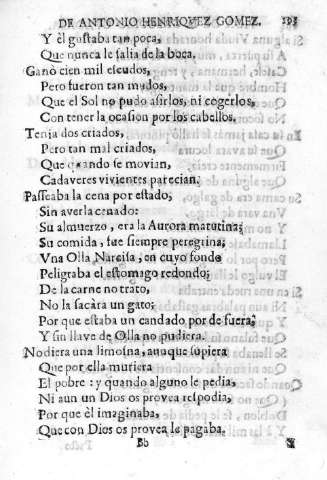 DE ANTONIO HENRIQVEZ GOMEZ. 193
Y èl gustaba tan poca,
Que nunca le salia de la boca.
Ganò cien mil escudos,
Pero fueron tan mudos,
Que el Sol no pudo asirlos, ni cogerlos,
Con tener la ocasion por los cabellos.
Tenia dos criados,
Pero tan mal criados,
Que quando se movian,
Cadaveres vivientes parecian.
Passeaba la cena por estado;
Sin averla cenado:
Su almuerzo, era la Aurora matutina;
Su comida, fue siempre peregrina;
Vna Olla Narcisa, en cuyo fondo
Peligraba el estomago redondo;
De la carne no trato,
No la sacàra un gato;
Por que estaba un candado por de fuera;
Y sin llave de Olla no pudiera.
No diera una limosna, aunque supiera
Que por ella muriera
El pobre: y quando alguno le pedia,
Ni aun un Dios os provea respodia,
Por que èl imaginaba,
Que con Dios os provea le pagaba.
Bb Y